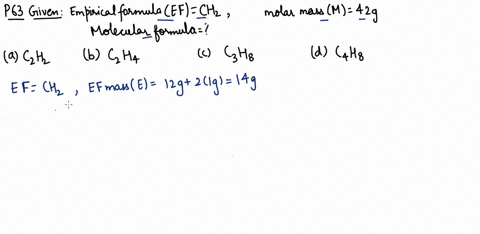 P63 Given: Empirical formula (EF) = CH₂, molar mass (M) = 42g
Molecular formula = ?
(a) C₂H₂ (b) C₂H₄ (c) C₃H₈ (d) C₄H₈
EF = CH₂, EF mass (E) = 12g + 2(1g) = 14g